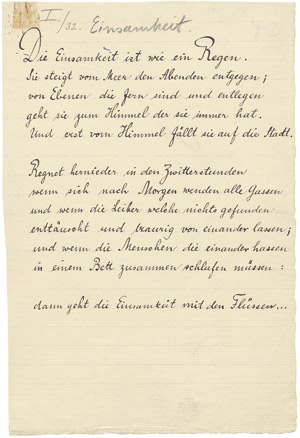 I/32. Einsamkeit.
Die Einsamkeit ist wie ein Regen.
Sie steigt vom Meer den Abenden entgegen;
von Ebenen die fern sind und entlegen
geht sie zum Himmel der sie immer hat.
Und erst vom Himmel fällt sie auf die Stadt.
Regnet hernieder in den Zwitterstunden
wenn sich nach Morgen wenden alle Gassen
und wenn die Leiber welche nichts gefunden
enttäuscht und traurig von einander lassen;
und wenn die Menschen die einander hassen
in einem Bett zusammen schlafen müssen:
dann geht die Einsamkeit mit den Flüssen...